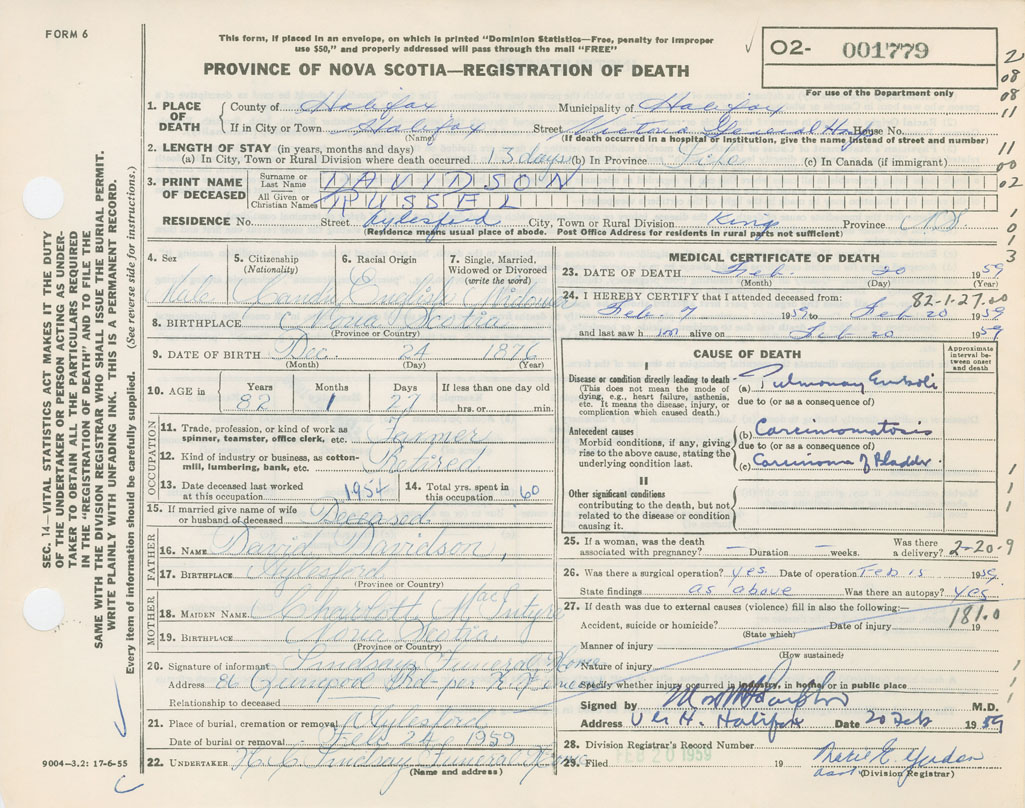 FORM 6
This form, if placed in an envelope, on which is printed "Dominion Statistics—Free, penalty for improper
use $50," and properly addressed will pass through the mail "FREE"
PROVINCE OF NOVA SCOTIA—REGISTRATION OF DEATH
O2- 001779
For use of the Department only
1. PLACE OF DEATH County of Halifax Municipality of Halifax
If in City or Town Halifax Street Victoria General Hosp House No.
(Name) (If death occurred in a hospital or institution, give the name instead of street and number)
2. LENGTH OF STAY (in years, months and days)
(a) In City, Town or Rural Division where death occurred 13 days (b) In Province Life (c) In Canada (if immigrant)
3. PRINT NAME OF DECEASED Surname or Last Name DAVIDSON
All Given or Christian Names RUSSEL
RESIDENCE No. Street Aylesford City, Town or Rural Division King Province N.S.
(Residence means usual place of abode. Post Office Address for residents in rural parts not sufficient)
4. Sex Male
5. Citizenship (Nationality)
6. Racial Origin English
7. Single, Married, Widowed or Divorced (write the word) Widower
8. BIRTHPLACE Nova Scotia
(Province or Country)
9. DATE OF BIRTH Dec. 24 1876
(Month) (Day) (Year)
10. AGE in Years Months Days If less than one day old
82 1 27 hrs. or min.
OCCUPATION
11. Trade, profession, or kind of work as spinner, teamster, office clerk, etc. Farmer
12. Kind of industry or business, as cotton-mill, lumbering, bank, etc. Retired
13. Date deceased last worked at this occupation 1954
14. Total yrs. spent in this occupation 60
15. If married give name of wife or husband of deceased Deceased
FATHER
16. NAME David Davidson
17. BIRTHPLACE Aylesford
(Province or Country)
MOTHER
18. MAIDEN NAME Charlotte MacIntyre
19. BIRTHPLACE Nova Scotia
(Province or Country)
20. Signature of informant Lindsay Funeral Home
Address 86 Quinpool Rd per
Relationship to deceased
21. Place of burial, cremation or removal Aylesford
Date of burial or removal Feb 24 1959
22. UNDERTAKER Lindsay Funeral Home
(Name and address)
MEDICAL CERTIFICATE OF DEATH
23. DATE OF DEATH Feb. 20 1959
(Month) (Day) (Year)
82-1-27.00
24. I HEREBY CERTIFY that I attended deceased from:
Feb. 7 1959, to Feb 20 1959
and last saw him alive on Feb 20 1959
CAUSE OF DEATH
Approximate interval between onset and death
I
Disease or condition directly leading to death— (a) Pulmonary Emboli
(This does not mean the mode of dying, e.g., heart failure, asthenia, etc. It means the disease, injury, or complication which caused death.)
due to (or as a consequence of)
Antecedent causes (b) Carcinomatosis
Morbid conditions, if any, giving rise to the above cause, stating the underlying condition last.
due to (or as a consequence of)
(c) Carcinoma of Bladder.
II
Other significant conditions
contributing to the death, but not related to the disease or condition causing it.
25. If a woman, was the death associated with pregnancy? — Duration — weeks. Was there a delivery?
2-20-9
26. Was there a surgical operation? yes Date of operation Feb 15 1959
State findings as above Was there an autopsy? yes
27. If death was due to external causes (violence) fill in also the following:—
181.0
Accident, suicide or homicide? Date of injury 19
(State which)
Manner of injury
(How sustained)
Nature of injury
Specify whether injury occurred in industry, in home or in public place
Signed by M.D.
Address V.G.H. Halifax Date 20 Feb 1959
28. Division Registrar's Record Number
FEB 20 1959
29. Filed 19
(Division Registrar)
SEC. 14—VITAL STATISTICS ACT MAKES IT THE DUTY
OF THE UNDERTAKER OR PERSON ACTING AS UNDER-
TAKER TO OBTAIN ALL THE PARTICULARS REQUIRED
IN THE "REGISTRATION OF DEATH" AND TO FILE THE
SAME WITH THE DIVISION REGISTRAR WHO SHALL ISSUE THE BURIAL PERMIT.
WRITE PLAINLY WITH UNFADING INK. THIS IS A PERMANENT RECORD.
Every item of information should be carefully supplied. (See reverse side for instructions.)
9004-3.2: 17-6-55
2
08
08
11
11
00
02
1
0
1
3